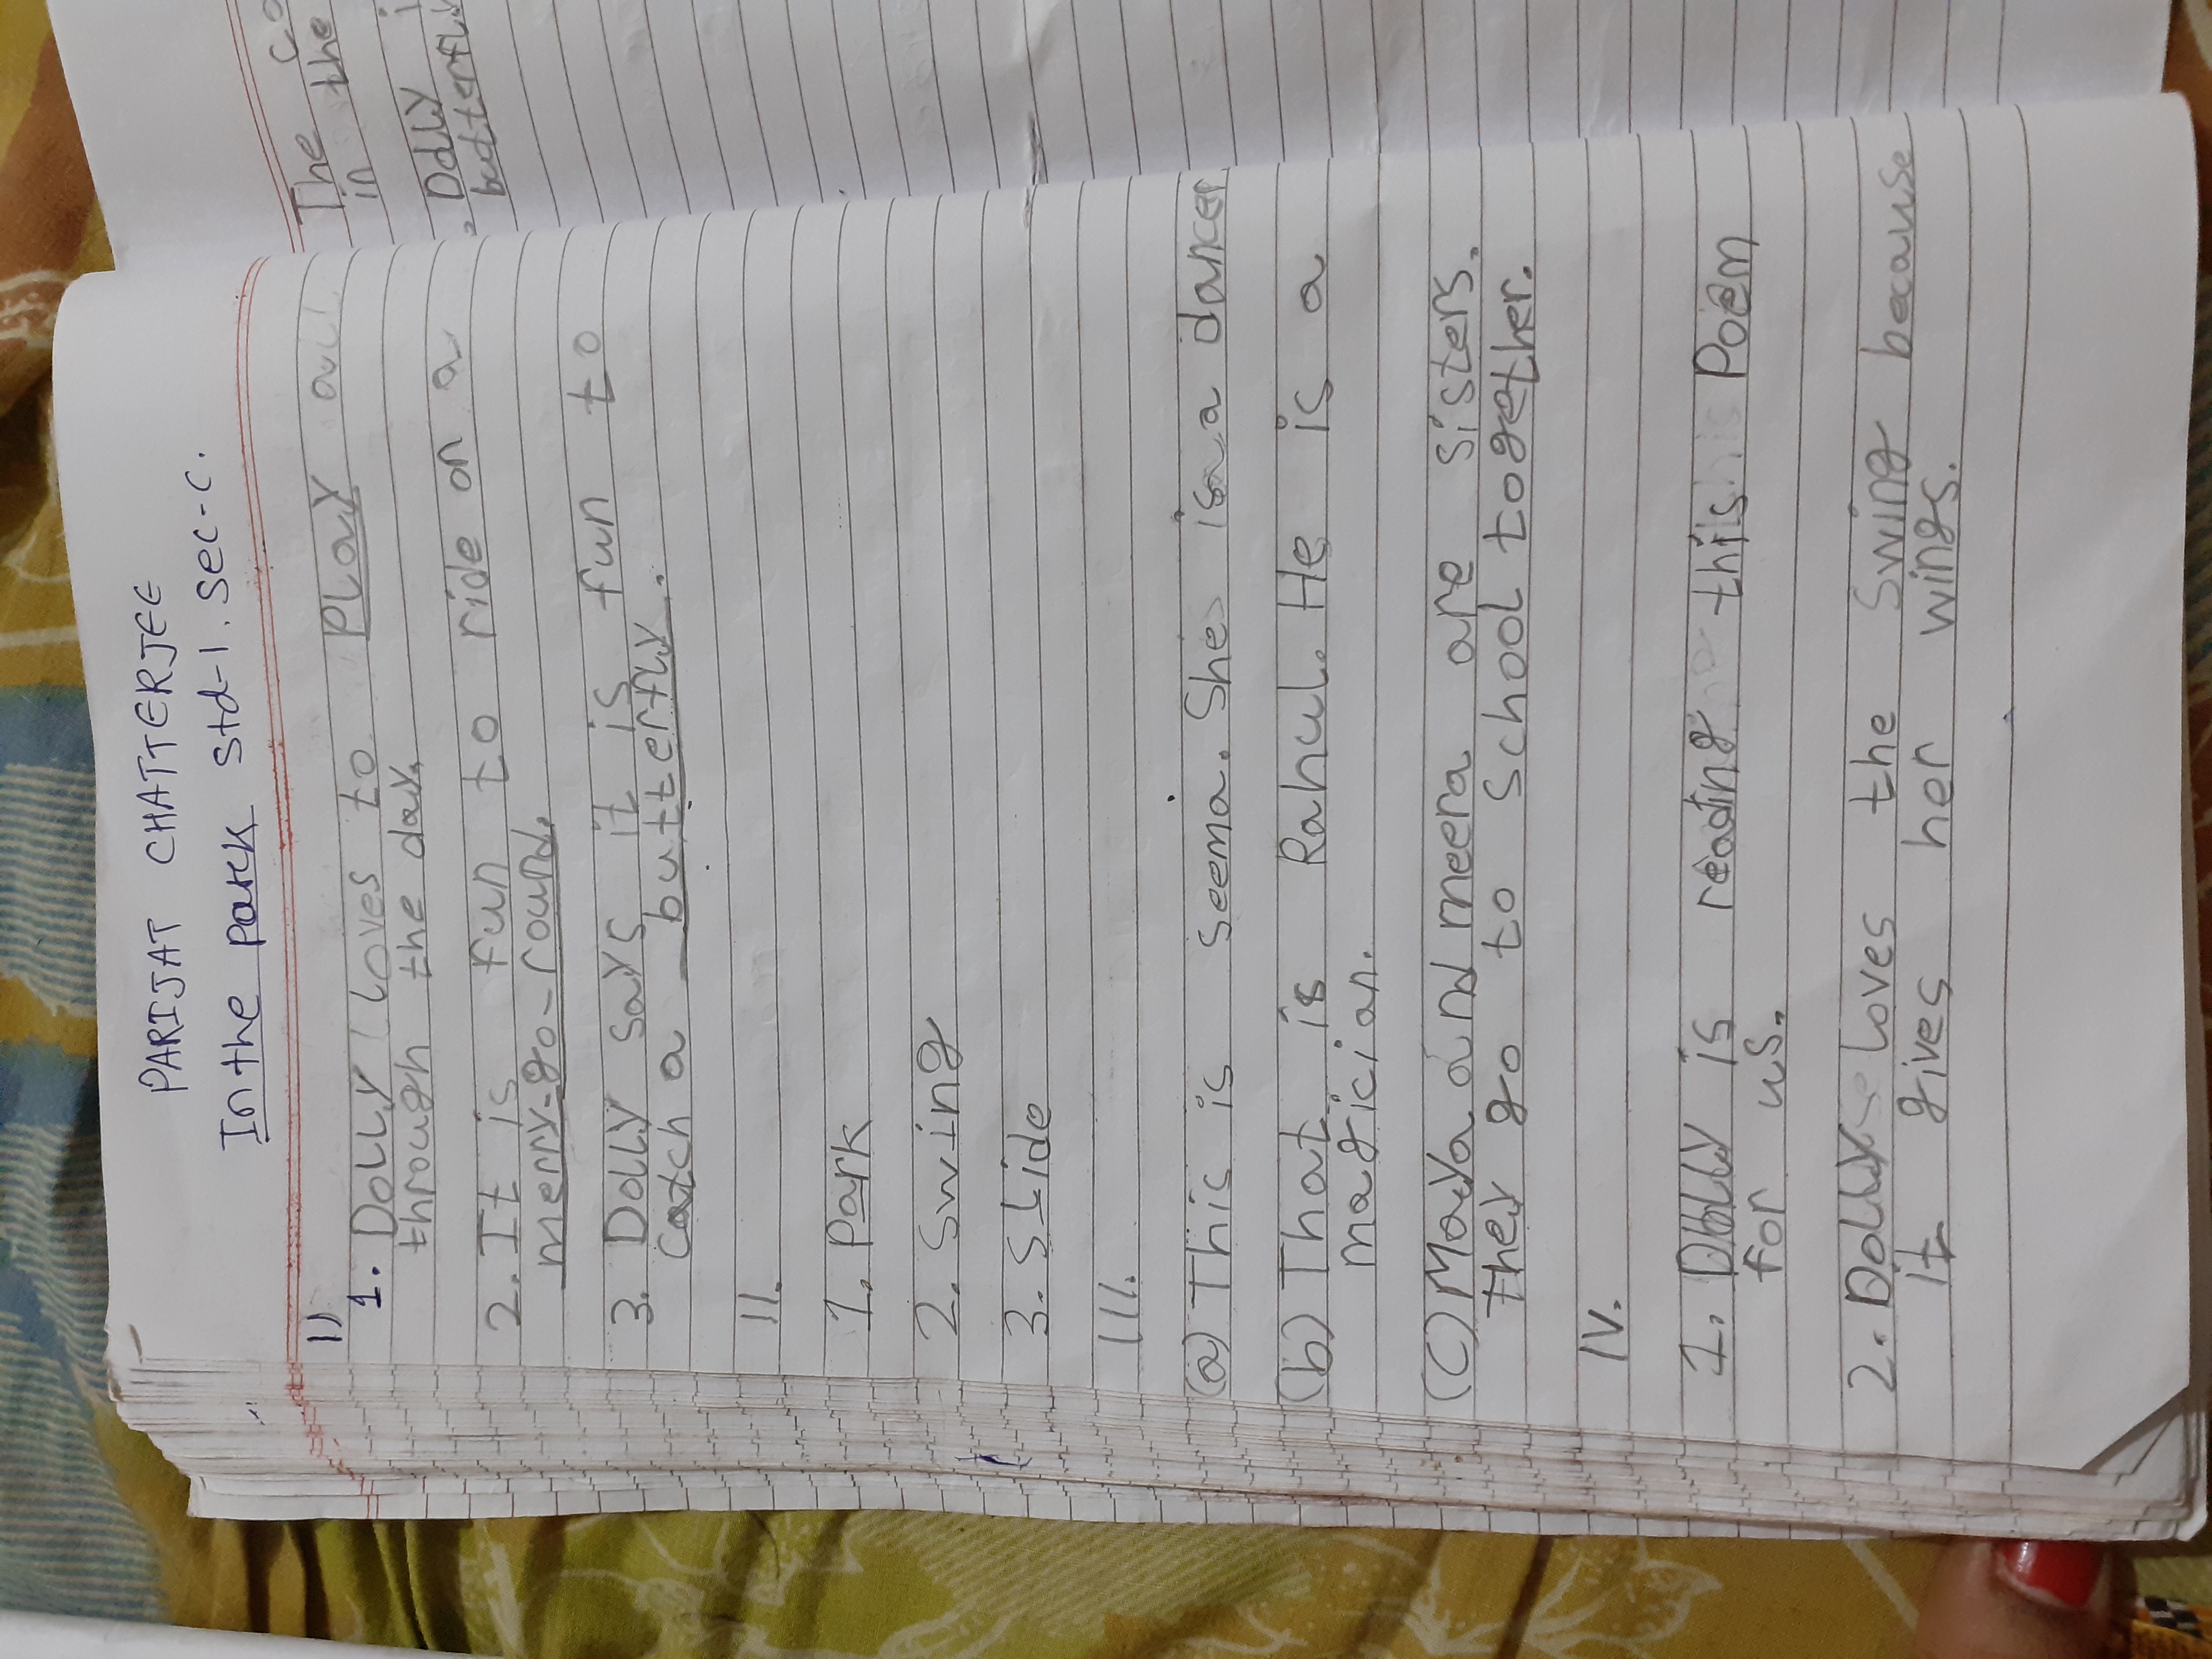 PARIJAT CHATTERJEE
In the park std-1. sec-c.
I)
1. Dolly loves to Play all
through the day.
2. It is fun to ride on a
merry-go-round.
3. Dolly says it is fun to
catch a butterfly.
II.
1. Park
2. Swing
3. Slide
III.
(a) This is Seema. She is a dancer
(b) That is Rahul. He is a
magician.
(c) Maya and meera are sisters.
they go to school together.
IV.
1. Dolly is reading this Poem
for us.
2. Dolly loves the swing because
it gives her wings.
The
in the
Dolly
butterfly